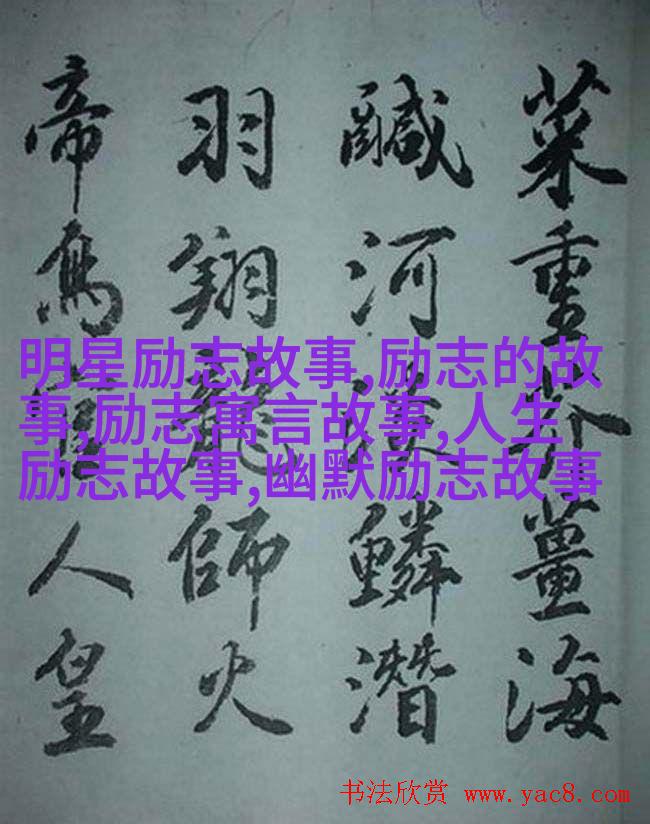 菜重芥薑海
鹹河淡鱗潛
羽翔龍師火
帝鳥人皇
明星励志故事,励志的故
事,励志寓言故事,人生
励志故事,幽默励志故事
书法欣赏 www.yac8.com